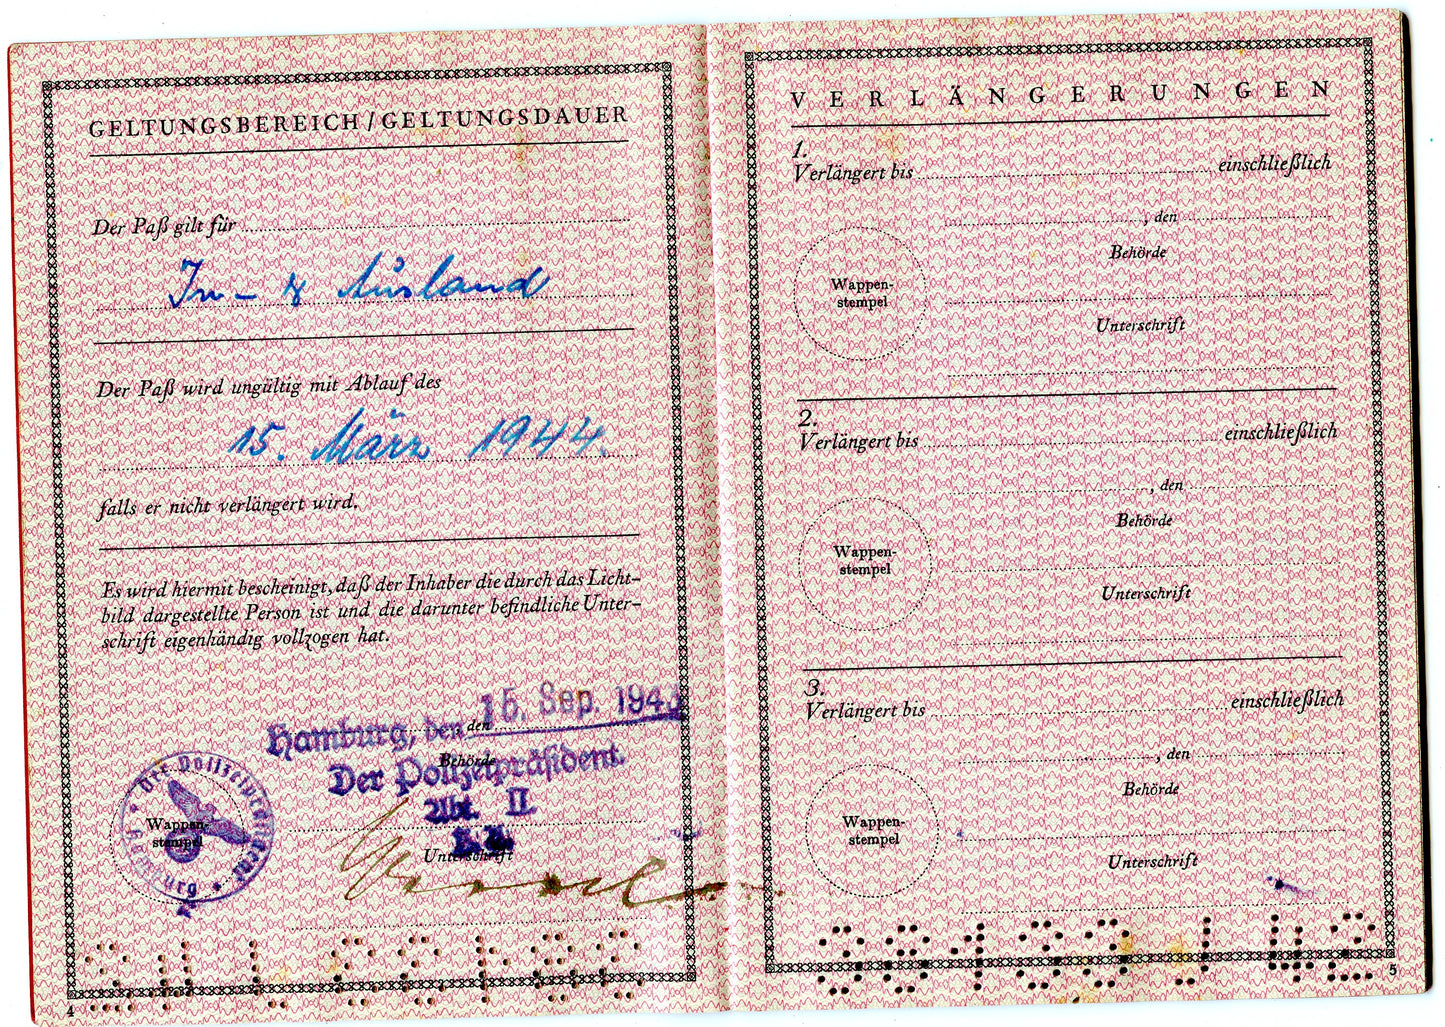 GELTUNGSBEREICH/GELTUNGSDAUER
Der Paß gilt für
In- & Ausland
Der Paß wird ungültig mit Ablauf des
15. März 1944.
falls er nicht verlängert wird.
Es wird hiermit bescheinigt, daß der Inhaber die durch das Licht-
bild dargestellte Person ist und die darunter befindliche Unter-
schrift eigenhändig vollzogen hat.
Hamburg, den 15. Sep. 194
den
Behörde
Der Polizeipräsident.
Abt. II.
Unterschrift
Der Polizeipräsident
Hamburg
Wappen-
stempel
4
VERLÄNGERUNGEN
1.
Verlängert bis einschließlich
, den
Behörde
Wappen-
stempel
Unterschrift
2.
Verlängert bis einschließlich
, den
Behörde
Wappen-
stempel
Unterschrift
3.
Verlängert bis einschließlich
, den
Behörde
Wappen-
stempel
Unterschrift
5